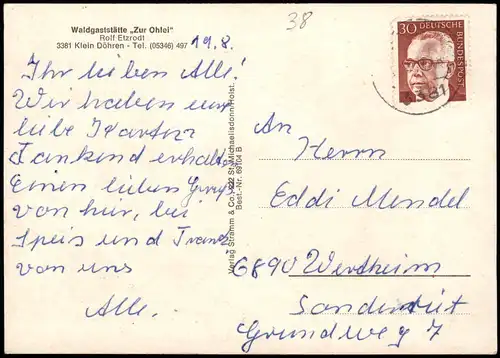 Waldgaststätte „Zur Ohlei"
Rolf Etzrodt
3381 Klein Döhren - Tel. (05346) 497
19.8.
38
30 DEUTSCHE BUNDESPOST
3381
Ihr lieben Alle!
Wir haben eure
liebe Karten
Dankend erhalten
Einen lieben Gruß
von hier, bei
Speis und Trank
von uns
Alle.
Verlag Stramm & Co., 2222 St. Michaelisdonn/Holst.
Best.-Nr. 69164 B
An
Herrn
Eddi Mendel
6890 Wertheim
Grundweg 7